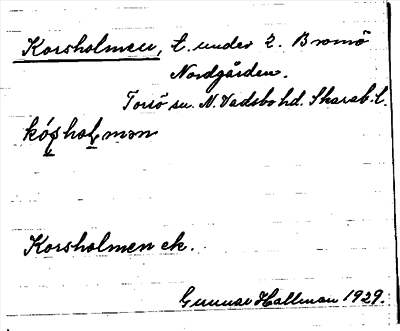 Korsholmen, t. under 2. Bromö
Nordgården.
Torsö sn. N. Vadsbo hd. Skarab. l.
Korsholmen ek.
Gunnar Hallman 1929.